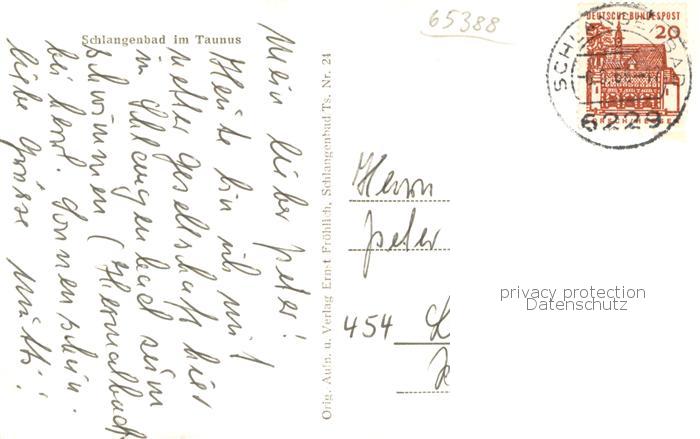 65388
Schlangenbad im Taunus
Mein lieber Peter!
Heute bin ich mit
netter Gesellschaft hier
in Schlangenbad zum
schwimmen (Thermalbad)
bei herrl. Sonnenschein.
liebe Grüsse Mutti!
Orig. Aufn. u. Verlag Ernst Fröhlich, Schlangenbad Ts. Nr. 24
DEUTSCHE BUNDESPOST
20
SCHLANGENBAD
6229
Herrn
Peter
454 L
privacy protection
Datenschutz